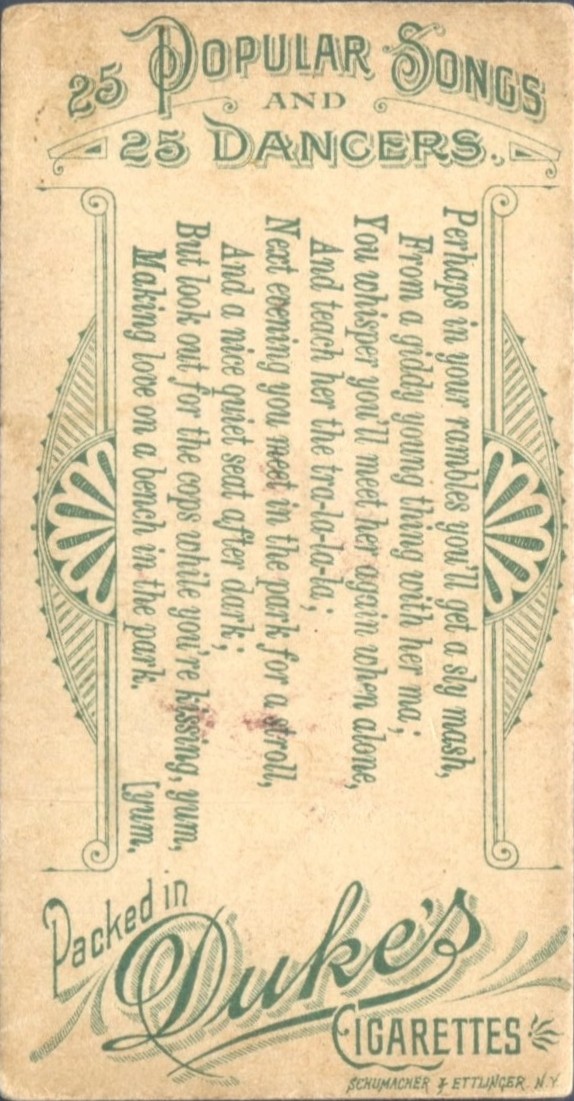 25 POPULAR SONGS
AND
25 DANCERS.
Perhaps in your rambles you'll get a sly mash,
From a giddy young thing with her ma;
You whisper you'll meet her again when alone,
And teach her the tra-la-la-la;
Next evening you meet in the park for a stroll,
And a nice quiet seat after dark;
But look out for the cops while you're kissing, yum,
Making love on a bench in the park. [yum,
Packed in
Duke's
CIGARETTES
SCHUMACHER & ETTLINGER. N.Y.